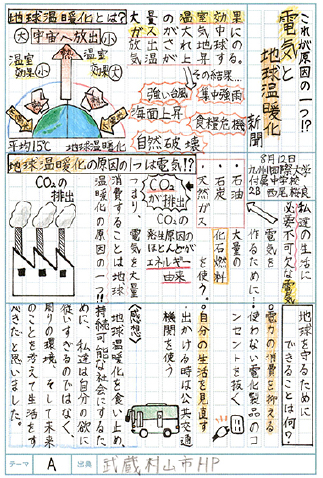 これが原因の一つ!?
電気と
地球温暖化
新聞
8月12日
九州国際大学
付属中学校
2B
地球温暖化とは?
大 宇宙へ放出 小
温室効果 小
温室効果 大
熱
平均15℃ 地球温暖化
その結果…
強い台風
集中豪雨
海面上昇
食糧危機
自然破壊
地球温暖化の原因の1つは電気!?
私達の生活に
必要不可欠な電気
を作るために…
大量の
・石油
・石炭
・天然ガス
化石燃料
を使う?
CO₂が排出
CO₂の発生ほとんどがエネルギー由来
つまり、電気を大量
消費することは地球
温暖化の原因の一つ!!
CO₂の排出
地球を守るために
できることは何?
・電力の消費を抑える
・使わない電化製品のコ
ンセントを抜く
・自分の生活を見直す
・出かける時は公共交通
機関を使う
《感想》
地球温暖化を食い止め、
持続可能な社会にするた
めに、私達は自分の欲に
従いすぎるのではなく、
周りの環境、そして未来
のことを考えて生活をす
べきだと思いました。
テーマ A 出典 武蔵村山市HP